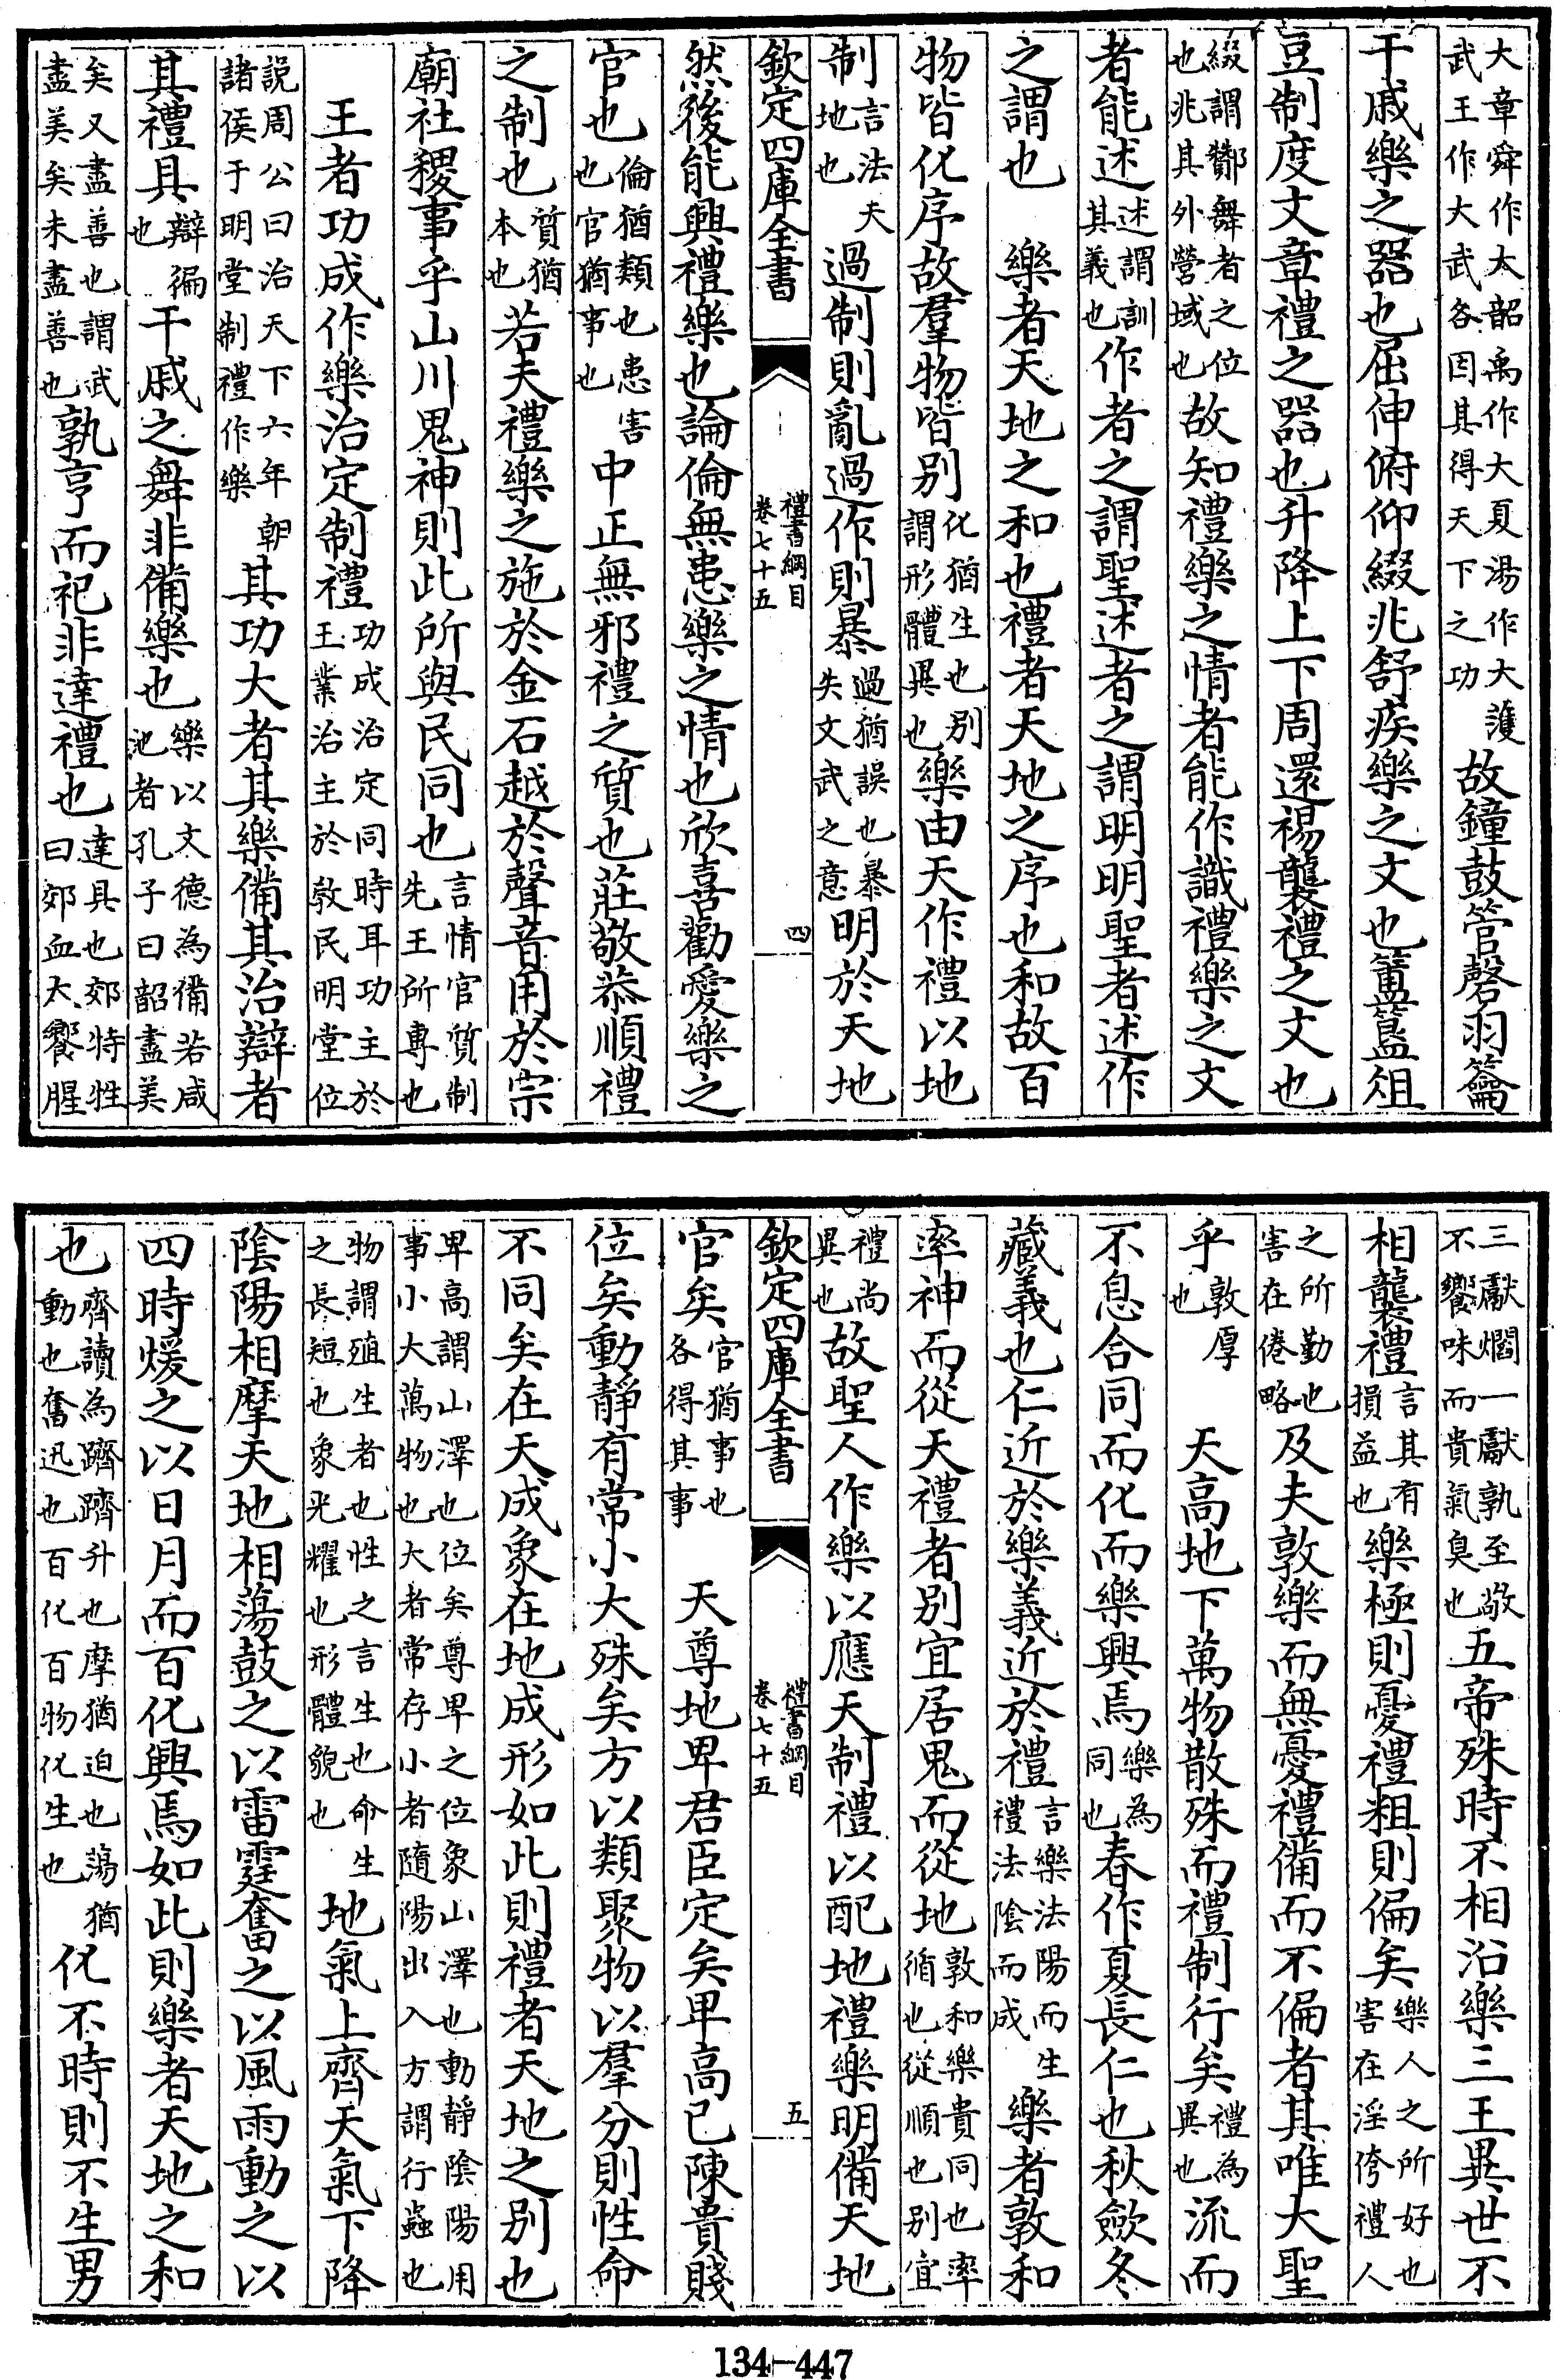 大章舜作大韶禹作大夏湯作大濩武王作大武各因其得天下之功故鐘鼓管磬羽籥
干戚樂之器也屈伸俯仰綴兆舒疾樂之文也簠簋俎
豆制度文章禮之器也升降上下周還裼襲禮之文也
綴謂酇舞者之位也兆其外營域也故知禮樂之情者能作識禮樂之文
者能述述謂訓其義也作者之謂聖述者之謂明明聖者述作
之謂也　樂者天地之和也禮者天地之序也和故百
物皆化序故羣物皆别化猶生也别謂形體異也樂由天作禮以地
制言法天地也過制則亂過作則暴過猶誤也暴失文武之意明於天地
欽定四庫全書　禮書綱目卷七十五　四
然後能興禮樂也論倫無患樂之情也欣喜勸愛樂之
官也倫猶類也患害也官猶事也中正無邪禮之質也莊敬恭順禮
之制也質猶本也若夫禮樂之施於金石越於聲音用於宗
廟社稷事乎山川鬼神則此所與民同也言情官質制先王所專也
王者功成作樂治定制禮功成治定同時耳功主於王業治主於教民明堂位
說周公曰治天下六年朝諸侯于明堂制禮作樂其功大者其樂備其治辯者
其禮具辯徧也干戚之舞非備樂也樂以文德為備若咸池者孔子曰韶盡美
矣又盡善也謂武盡美矣未盡善也孰亨而祀非達禮也達具也郊特牲曰郊血大饗腥
三獻爓一獻孰至敬不饗味而貴氣臭也五帝殊時不相沿樂三王異世不
相襲禮言其有損益也樂極則憂禮粗則偏矣樂人之所好也害在淫侉禮人
之所勤也害在倦略及夫敦樂而無憂禮備而不偏者其唯大聖
乎敦厚也　天高地下萬物散殊而禮制行矣禮為異也流而
不息合同而化而樂興焉樂為同也春作夏長仁也秋歛冬
藏義也仁近於樂義近於禮言樂法陽而生禮法陰而成　樂者敦和
率神而從天禮者别宜居鬼而從地敦和樂貴同也率循也從順也别宜
禮尚異也故聖人作樂以應天制禮以配地禮樂明備天地
欽定四庫全書　禮書綱目卷七十五　五
官矣官猶事也各得其事　天尊地卑君臣定矣卑高已陳貴賤
位矣動靜有常小大殊矣方以類聚物以羣分則性命
不同矣在天成象在地成形如此則禮者天地之别也
卑高謂山澤也位矣尊卑之位象山澤也動靜陰陽用事小大萬物也大者常存小者隨陽出入方謂行蟲也
物謂殖生者也性之言生也命生之長短也象光耀也形體貌也地氣上齊天氣下降
陰陽相摩天地相蕩鼓之以雷霆奮之以風雨動之以
四時煖之以日月而百化興焉如此則樂者天地之和
也齊讀為躋躋升也摩猶迫也蕩猶動也奮迅也百化百物化生也化不時則不生男
134-447